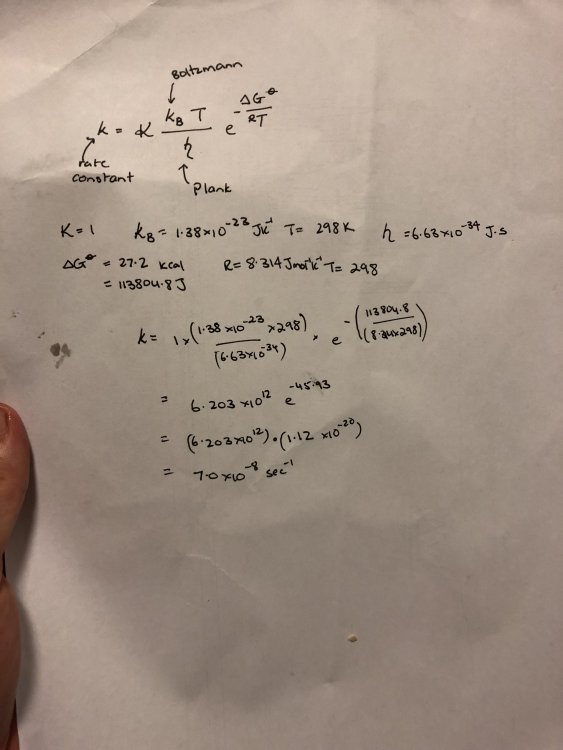 Boltzmann
k = K k_B T / h e^(-ΔG^⊖/RT)
rate
constant
Plank
K = 1 k_B = 1.38×10^-23 JK^-1 T = 298 K h = 6.63×10^-34 J.s
ΔG^⊖ = 27.2 kcal R = 8.314 Jmol^-1K^-1 T = 298
= 113804.8 J
k = 1 × (1.38×10^-23 × 298) / (6.63×10^-34) × e^-(113804.8 / (8.314×298))
= 6.203×10^12 e^-45.93
= (6.203×10^12) · (1.12 ×10^-20)
= 7.0×10^-8 sec^-1